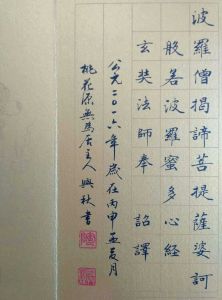 波羅僧揭諦菩提薩婆訶
般若波羅蜜多心経
玄奘法師奉 詔譯
公元二〇一六年歲在丙申孟夏月
桃花源無為居主人興秋書